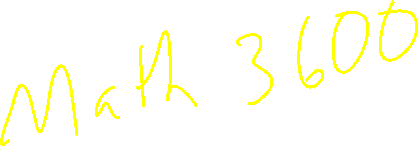 Math 3600